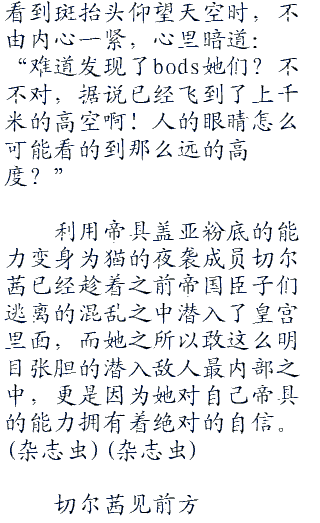 看到斑抬头仰望天空时，不
由内心一紧，心里暗道：
“难道发现了bods她们？不
不对，据说已经飞到了上千
米的高空啊！人的眼睛怎么
可能看的到那么远的高
度？”
利用帝具盖亚粉底的能
力变身为猫的夜袭成员切尔
茜已经趁着之前帝国臣子们
逃离的混乱之中潜入了皇宫
里面，而她之所以敢这么明
目张胆的潜入敌人最内部之
中，更是因为她对自己帝具
的能力拥有着绝对的自信。
(杂志虫)(杂志虫)
切尔茜见前方